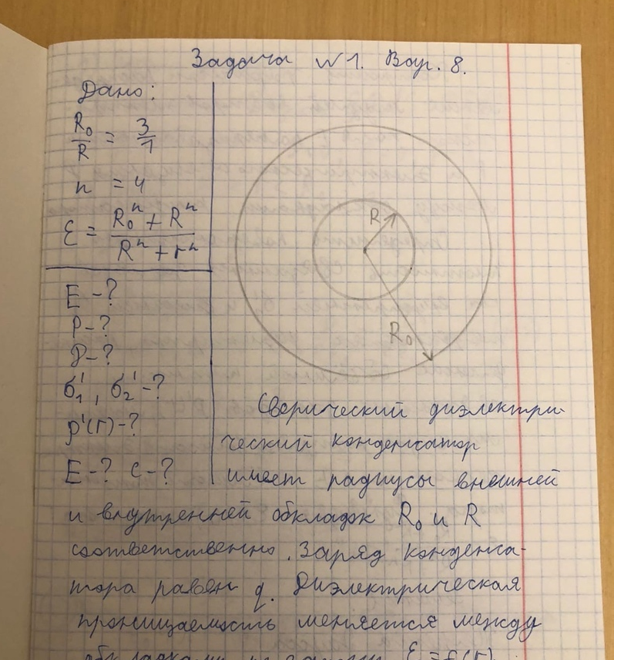 Задача №1. Вар. 8.
Дано:
R₀/R = 3/1
n = 4
ε = (R₀ⁿ + Rⁿ)/(Rⁿ + rⁿ)
E - ?
P - ?
D - ?
σ₁', σ₂' - ?
ρ'(r) - ?
E - ? c - ?
R
R₀
Сферический диэлектри-
ческий конденсатор
имеет радиусы внешней
и внутренней обкладок R₀ и R
соответственно. Заряд конденса-
тора равен q. Диэлектрическая
проницаемость меняется между
обкладками ε = f(r)